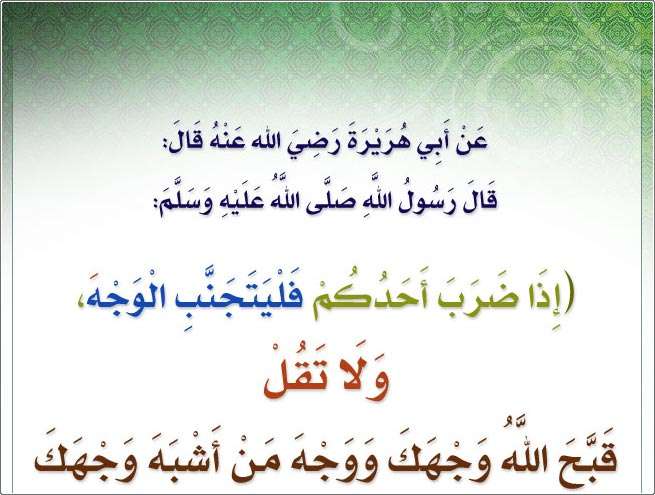 عَنْ أَبِي هُرَيْرَةَ رَضِيَ الله عَنْهُ قَالَ:
قَالَ رَسُولُ اللَّهِ صَلَّى اللَّهُ عَلَيْهِ وَسَلَّمَ:
(إِذَا ضَرَبَ أَحَدُكُمْ فَلْيَتَجَنَّبِ الْوَجْهَ،
وَلَا تَقُلْ
قَبَّحَ اللَّهُ وَجْهَكَ وَوَجْهَ مَنْ أَشْبَهَ وَجْهَكَ